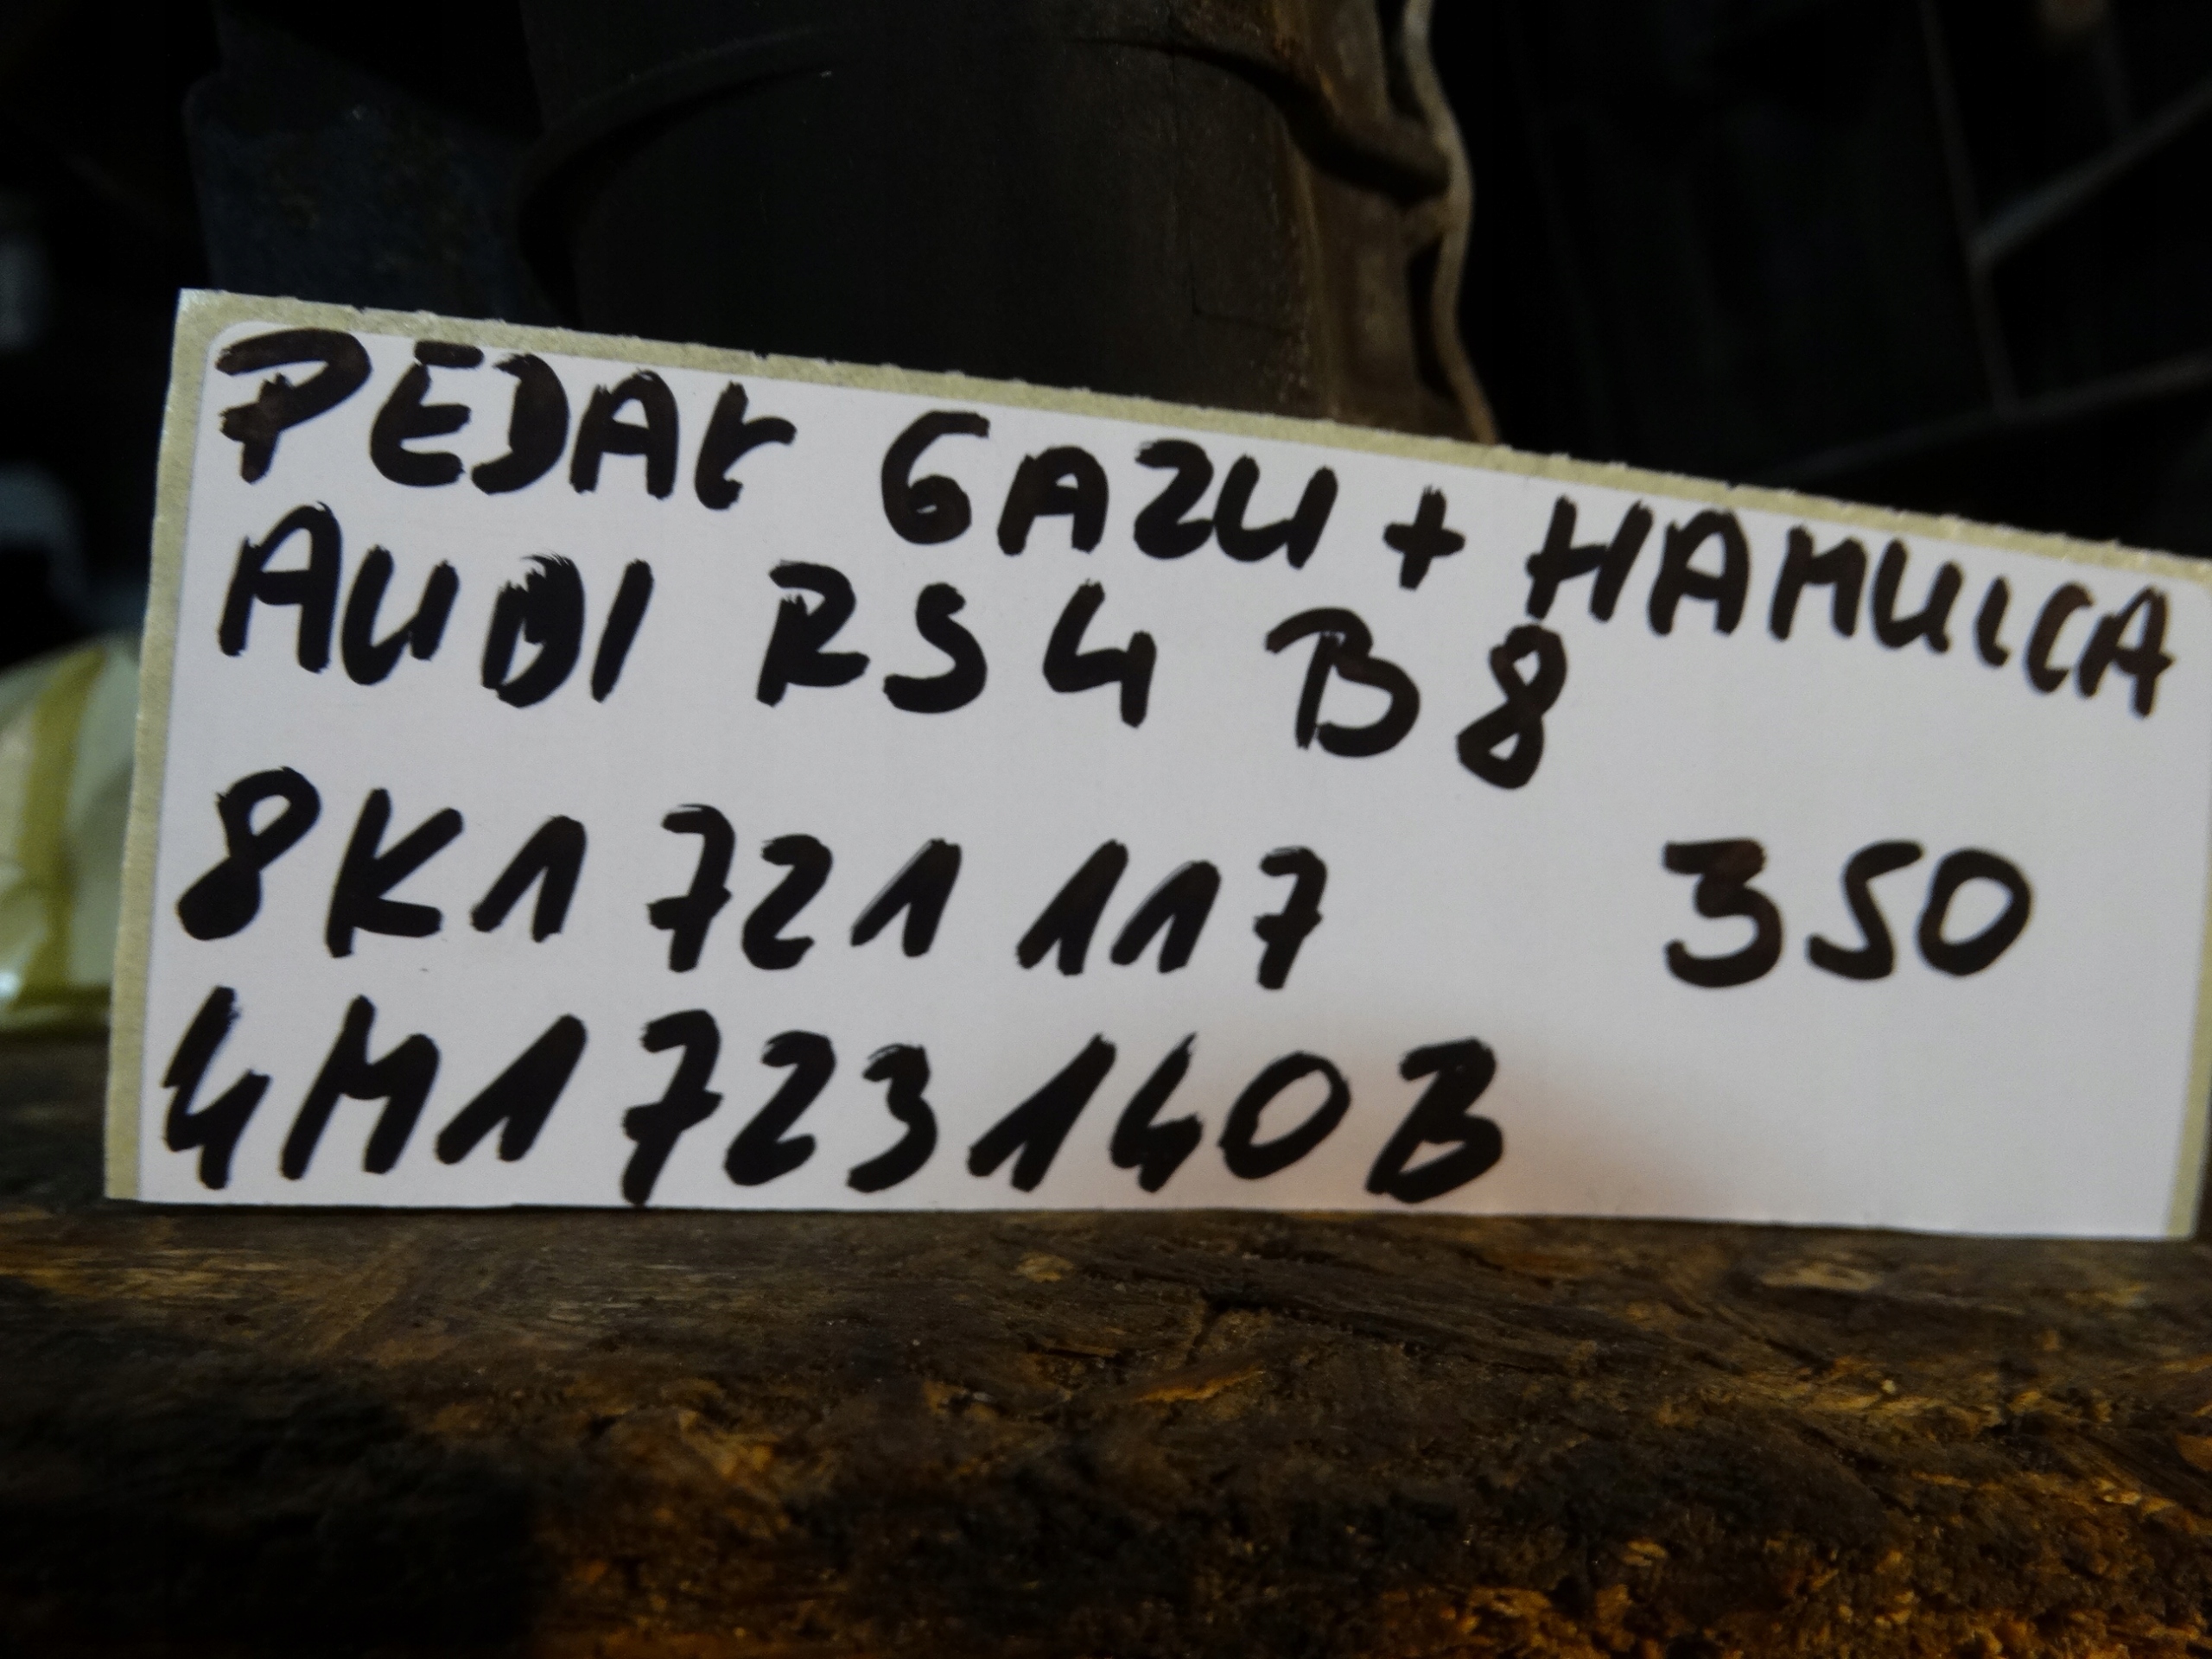 PEDAŁ GAZU + HAMULCA
AUDI RS4 B8
8K1 721 117 350
4M1723140B